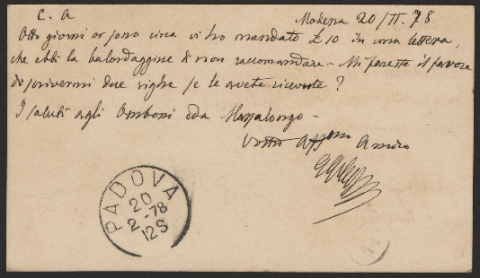 C. A
Modena 20/II. 78
Otto giorni or sono circa vi ho mandate £ 10 in una lettera,
che ebbi la balordaggine di non raccomandare - Mi fareste il favore
di scrivermi due righe se le avete ricevute?
I saluti agli Omboni e da
Vostro Aff Amico
PADOVA
20
2-78
12S